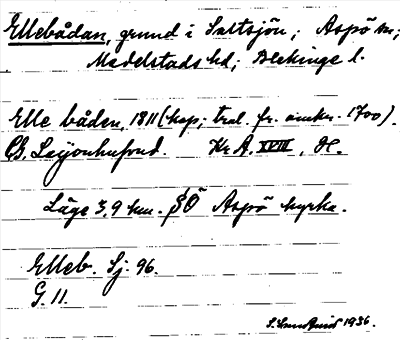 Ellebådan, grund i Saltsjön; Aspö sn;
Medelstads hd; Blekinge l.
Elle båden, 1811 (kop; tral. fr. omkr. 1700).
Lejonhufvud. Kr A. XVIII,
Läge 3,9 km. SÖ Aspö kyrka.
Elleb. Sj. 96.
G. 11.
1936.